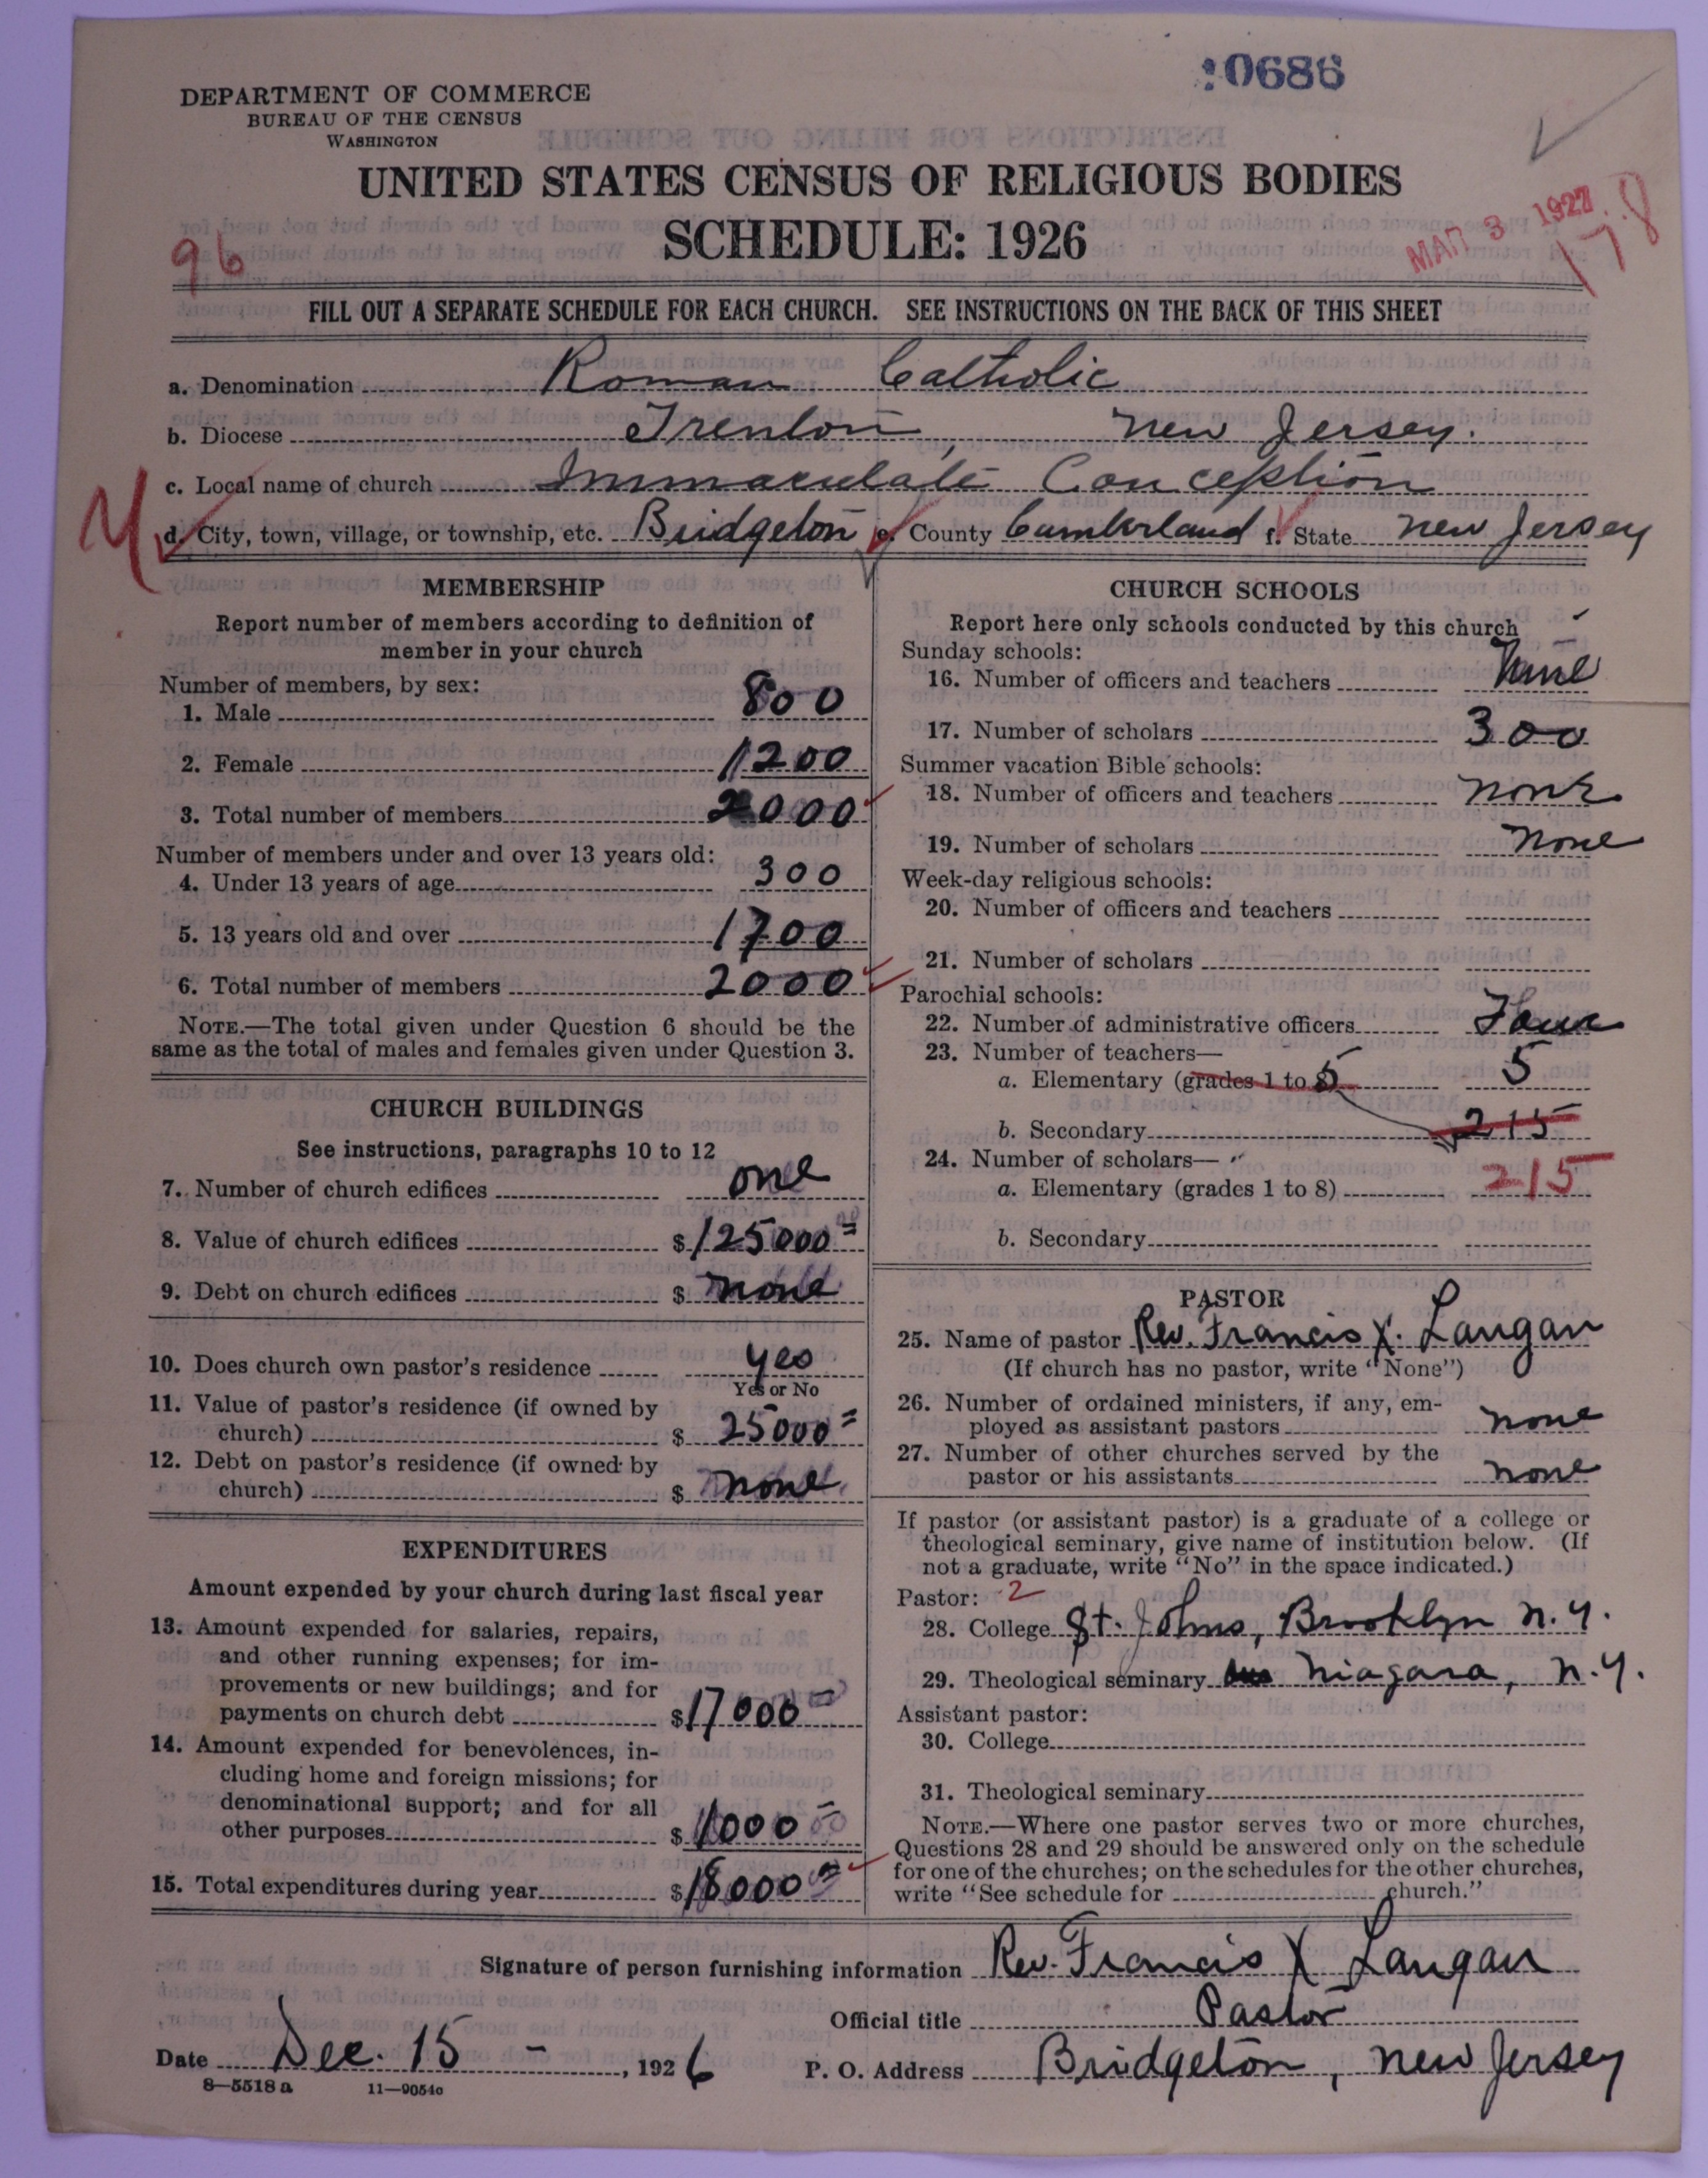 10686
DEPARTMENT OF COMMERCE
BUREAU OF THE CENSUS
WASHINGTON
UNITED STATES CENSUS OF RELIGIOUS BODIES
SCHEDULE: 1926
96
MAR 3 1927
178
FILL OUT A SEPARATE SCHEDULE FOR EACH CHURCH. SEE INSTRUCTIONS ON THE BACK OF THIS SHEET
a. Denomination Roman Catholic
b. Diocese Trenton, New Jersey.
c. Local name of church Immaculate Conception
d. City, town, village, or township, etc. Bridgeton e. County Cumberland f. State New Jersey
MEMBERSHIP
Report number of members according to definition of
member in your church
Number of members, by sex:
1. Male 800
2. Female 1200
3. Total number of members 2000
Number of members under and over 13 years old:
4. Under 13 years of age 300
5. 13 years old and over 1700
6. Total number of members 2000
NOTE.—The total given under Question 6 should be the
same as the total of males and females given under Question 3.
CHURCH BUILDINGS
See instructions, paragraphs 10 to 12
7. Number of church edifices one
8. Value of church edifices $125000=
9. Debt on church edifices $ none
10. Does church own pastor's residence yes
Yes or No
11. Value of pastor's residence (if owned by
church) $ 25000=
12. Debt on pastor's residence (if owned by
church) $ none
EXPENDITURES
Amount expended by your church during last fiscal year
13. Amount expended for salaries, repairs,
and other running expenses; for im-
provements or new buildings; and for
payments on church debt $17000
14. Amount expended for benevolences, in-
cluding home and foreign missions; for
denominational support; and for all
other purposes $1000
15. Total expenditures during year $18000
CHURCH SCHOOLS
Report here only schools conducted by this church
Sunday schools:
16. Number of officers and teachers
17. Number of scholars 300
Summer vacation Bible schools:
18. Number of officers and teachers none
19. Number of scholars none
Week-day religious schools:
20. Number of officers and teachers
21. Number of scholars
Parochial schools:
22. Number of administrative officers Four
23. Number of teachers—
a. Elementary (grades 1 to 8) 5 5
b. Secondary 215
24. Number of scholars—
a. Elementary (grades 1 to 8) 215
b. Secondary
PASTOR
25. Name of pastor Rev. Francis X. Langan
(If church has no pastor, write "None")
26. Number of ordained ministers, if any, em-
ployed as assistant pastors none
27. Number of other churches served by the
pastor or his assistants none
If pastor (or assistant pastor) is a graduate of a college or
theological seminary, give name of institution below. (If
not a graduate, write "No" in the space indicated.)
Pastor: 2
28. College St. Johns, Brooklyn N.Y.
29. Theological seminary Niagara, N.Y.
Assistant pastor:
30. College
31. Theological seminary
NOTE.—Where one pastor serves two or more churches,
Questions 28 and 29 should be answered only on the schedule
for one of the churches; on the schedules for the other churches,
write "See schedule for church."
Signature of person furnishing information Rev. Francis X Langan
Official title Pastor
Date Dec. 15 - , 1926 P. O. Address Bridgeton, New Jersey
8—5518a 11—9054a